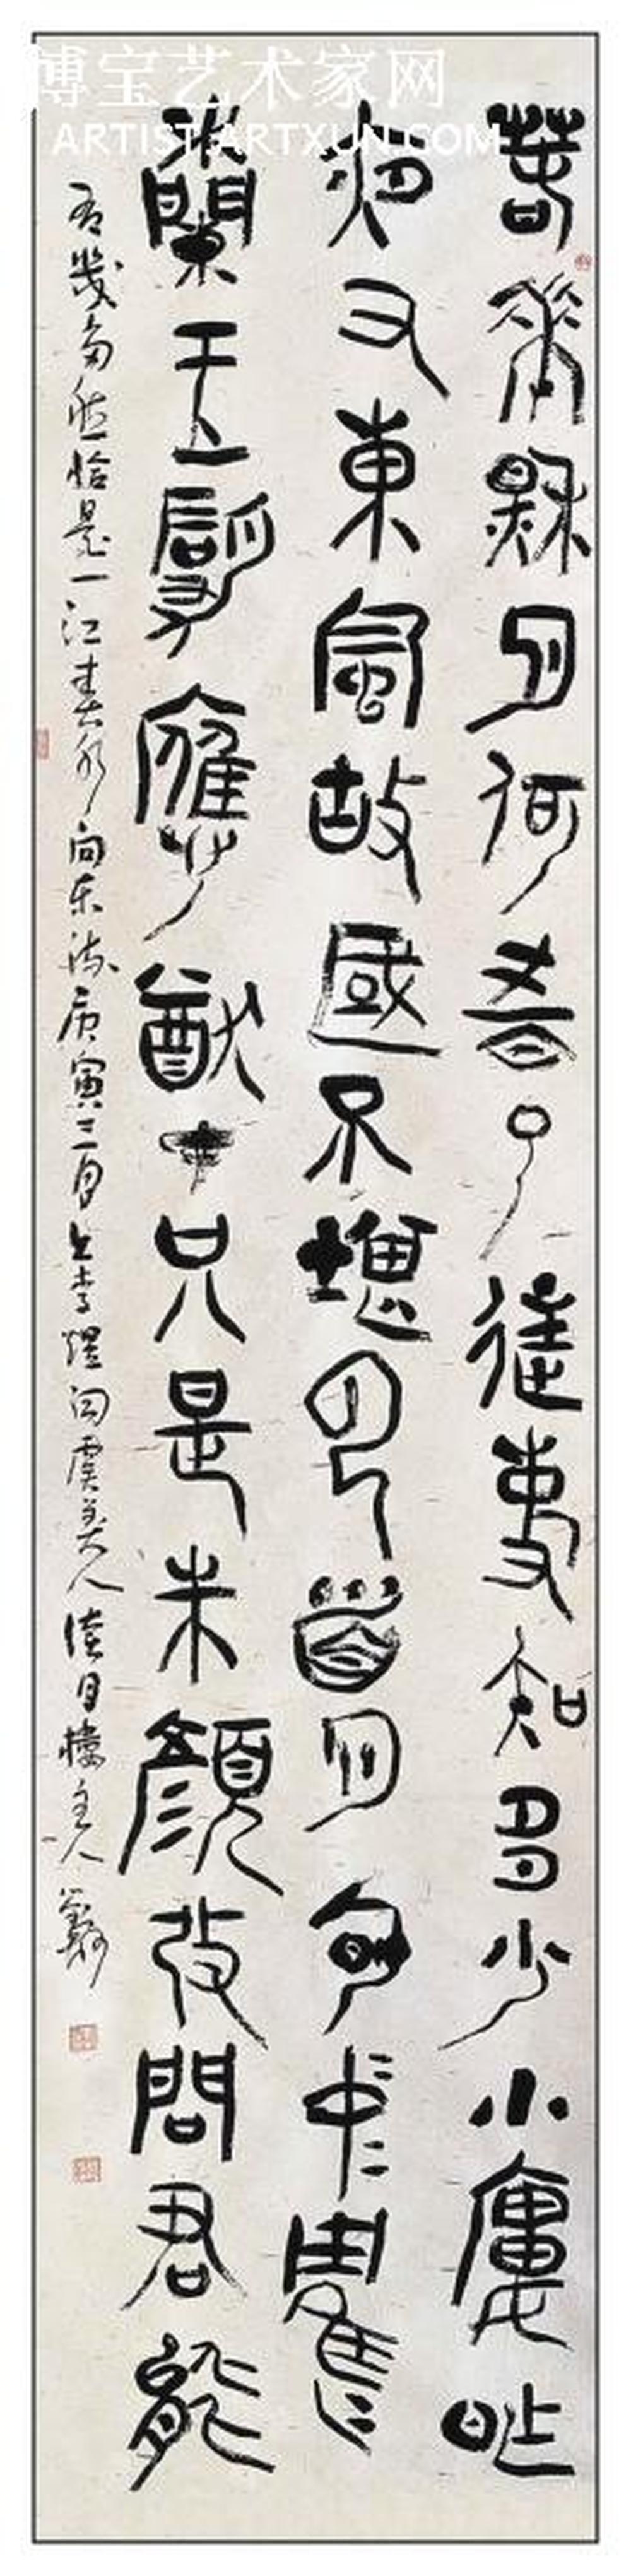 博宝艺术家网
ARTIST.ARTXUN.COM
春花秋月何時了往事知多少小樓昨
夜又東風故國不堪回首月明中雕
闌玉砌應猶在只是朱顏改問君能
有幾多愁恰是一江春水向东流庚寅三月李煜词虞美人月樓主人